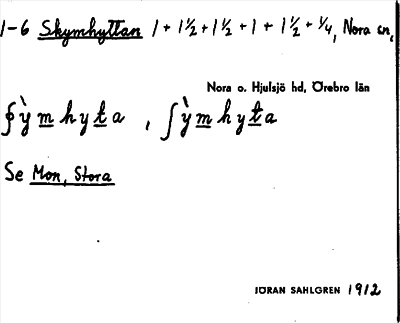 1-6 Skymhyttan 1 + 1½ + 1½ + 1 + 1½ + ¼, Nora sn,
Nora o. Hjulsjö hd, Örebro län
ʃy̆̀m̲hyt̲a, ʃỳm̲hyt̲a
Se Mon, Stora
JÖRAN SAHLGREN 1912